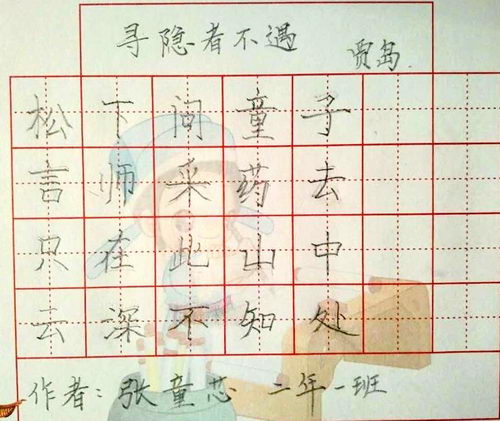 寻隐者不遇 贾岛
松下问童子
言师采药去
只在此山中
云深不知处
作者：张童芯 二年一班